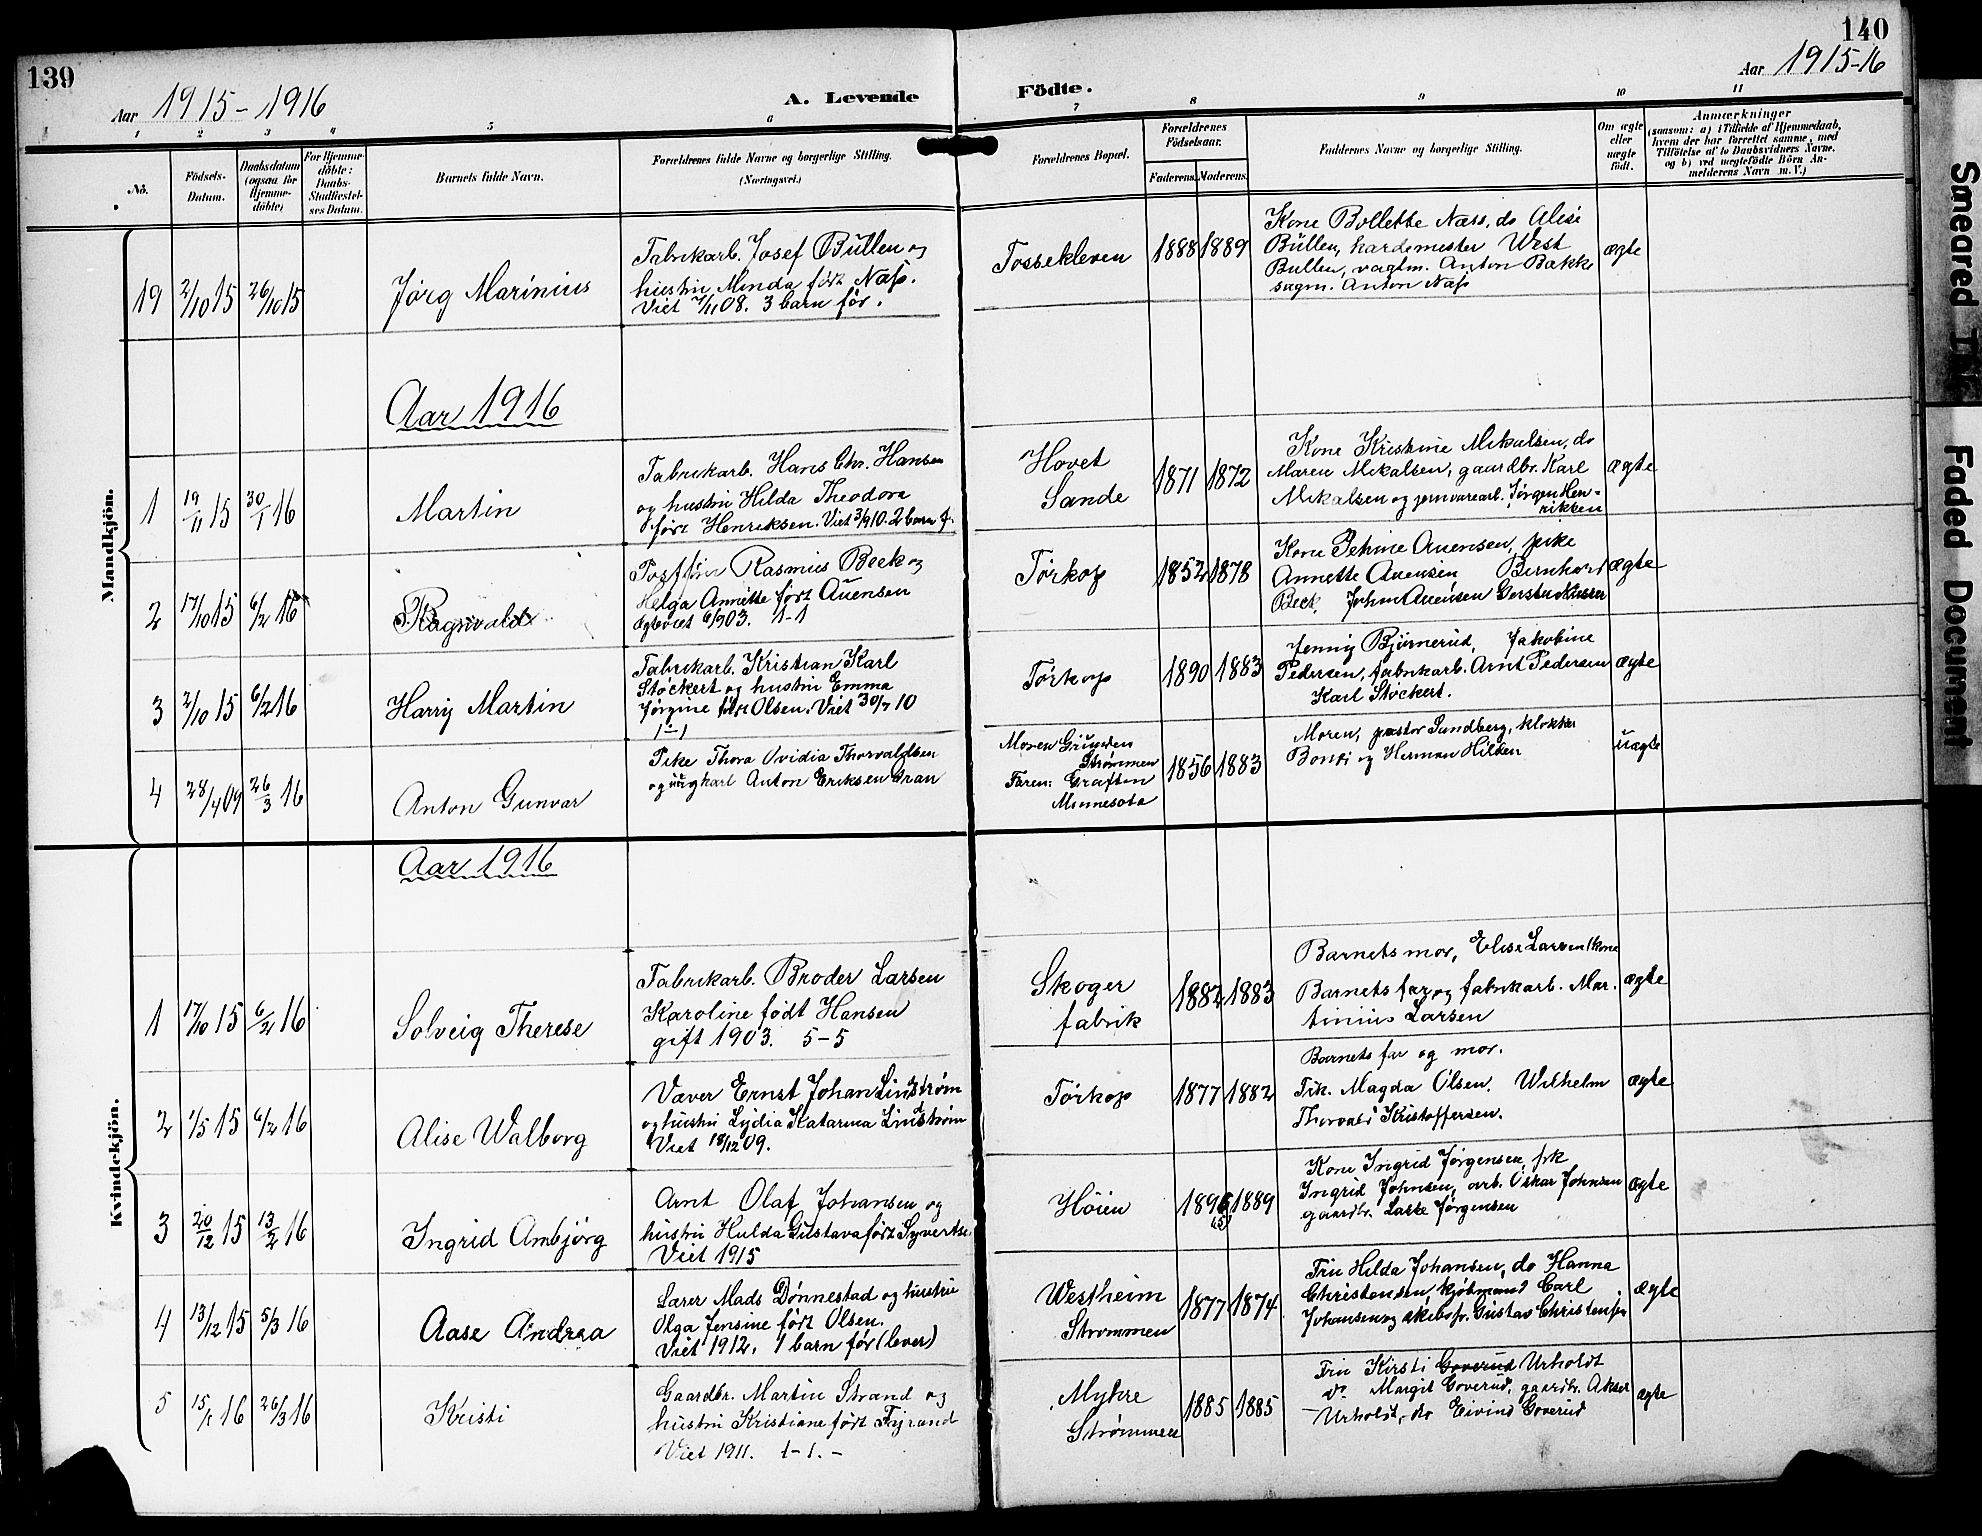 139
Aar 1915-1916
A. Levende
Födte.
140
Aar 1915-16
1 2 3 4 5 6 7 8 9 10 11
No.
Födsels-Datum.
Daabsdatum (ogsaa for Hjemmedöbte)
For Hjemmedöbte: Daabs-Stadfæstelses Datum.
Barnets fulde Navn.
Forældrenes fulde Navne og borgerlige Stilling.
(Næringsvei.)
Forældrenes Bopæl.
Forældrenes Födselsaar.
Faderens. Moderens.
Faddernes Navne og borgerlige Stilling.
Om ægte eller uægte födt.
Anmærkninger
(saasom: a) i Tilfælde af Hjemmedaab,
hvem der har forrettet samme, med
Tilföielse af to Daabsvidners Navne.
og b) ved uægtefödte Börn An-
melderens Navn m. V.)
Mandkjön.
19 2/10 15 26/10 15 Jørg Marinius
Fabrikarb. Josef Büllen og
hustru Minda født Næss.
Viet 7/11 08. 3 barn før.
Fossekleven 1888 1889
Kone Bollette Næss, do Alise
Büllen, hardemester West
Bullen, vagtm. Anton Bakke
sagm. Anton Næss
ægte
Aar 1916
1 19/11 15 30/1 16 Martin
Fabrikarb. Hans Chr. Hansen
og hustru Hilda Theodora
født Henriksen. Viet 3/9 10. 2 barn f.
Hovet
Sande
1871 1872
Kone Kristine Mikalsen, do
Maren Mikalsen, gaardbr. Karl
Mikalsen og jernvarearb. Jørgen Hen-
rikken
ægte
2 17/10 15 6/2 16 Ragnvald
Rasmus Beck og
Helga Annette født Auensen
Ægteviet 6/9 03. 1-1
Tørkop 1852 1878
Kone Petrine Auensen, pike
Annette Auensen, Bernhard
Beck, Johan Auensen
ægte
3 2/10 15 6/2 16 Harry Martin
Fabrikarb. Kristian Karl
Støckert og hustru Emma
Jørgine født Olsen. Viet 30/7 10
1-1
Tørkop 1890 1883
Jenny Bjørnerud, Jakobine
Pedersen, fabrikarb. Arnt Pedersen
Karl Støckert.
ægte
4 28/4 09 26/3 16 Anton Gunvar
Pike Thora Ovidia Thorvaldsen
og ungkarl Anton Eriksen Gran
Moren Grunden
Strømmen
Faren: Grafton
Minnesota
1856 1883
Moren, pastor Sundberg, klokker
Bonsi og Herman Hilken
uægte
Kvindekjön.
Aar 1916
1 17/10 15 6/2 16 Solveig Therese
Fabrikarb. Broder Larsen
Karoline født Hansen
gift 1903. 5-5
Skoger
fabrik
1882 1883
Barnets mor, Elise Larsen (kone
Barnets far og fabrikarb. Mar-
tinius Larsen
ægte
2 1/5 15 6/2 16 Alise Walborg
Væver Ernst Johan Lindstrøm
og hustru Lydia Katarina Lindstrøm
Viet 18/12 09.
Tørkop 1877 1882
Barnets far og mor.
Frk. Magda Olsen. Wilhelm
Thorvald Kristoffersen.
ægte
3 20/12 15 13/2 16 Ingrid Ambjørg
Arnt Olaf Johansen og
hustru Hulda Gustava født Syvertse.
Viet 1915
Høien 1896 1889
Kone Ingrid Jørgensen, frk
Ingrid Johnsen, arb. Oskar Johnsen
gaardbr. Lasse Jørgensen
ægte
4 13/12 15 5/3 16 Aase Andrea
Lærer Mads Dønnestad og hustru
Olga Jensine født Olsen.
Viet 1912. 1 barn før (lever)
Westheim
Strømmen
1877 1874
Fru Hilda Johansen, do Hanna
Christensen, kjøbmand Carl
Johansen og skibsfr. Gustav Christensen
ægte
5 15/1 16 26/3 16 Kristi
Gaardbr. Martin Strand og
hustru Kristiane født Fijrand
Viet 1911. 1-1.-
Myhre
Strømmen
1885 1885
Fru Kirsti Goverud Urholdt
do Margit Goverud, gaardbr. Aksel
Urholdt, do Eivind Goverud
ægte
Smeared Ink
Faded Document